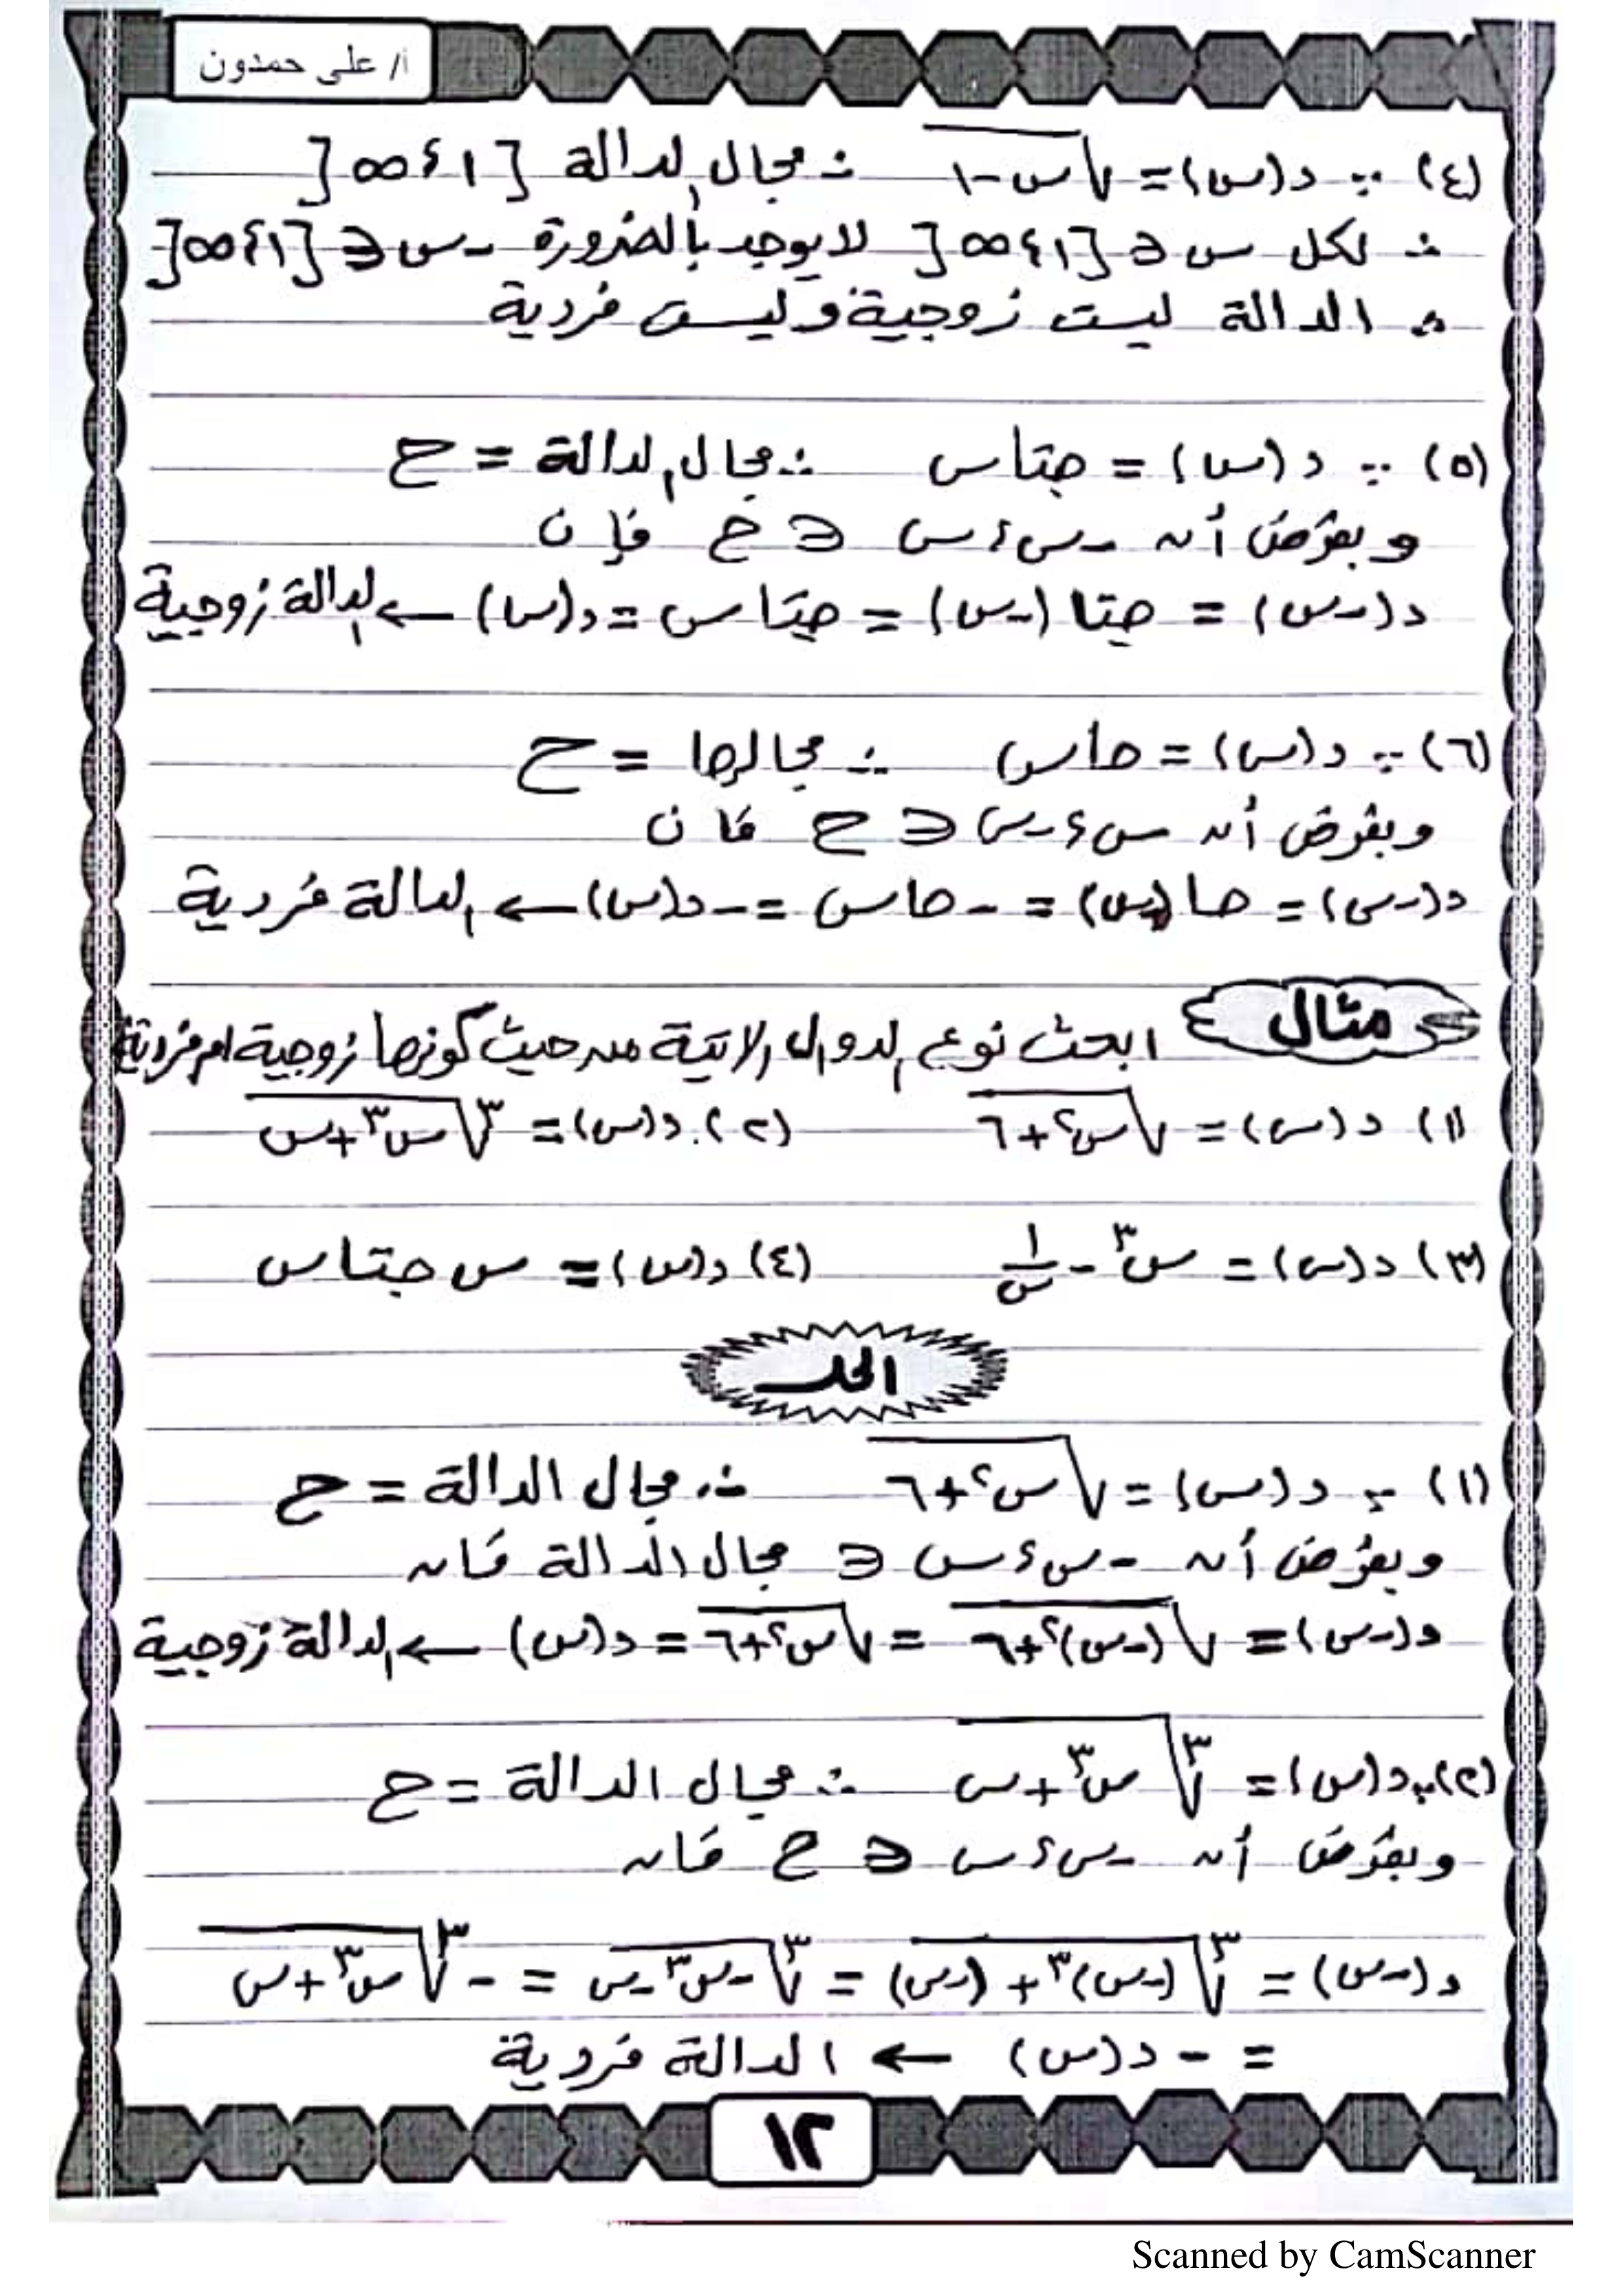 أ/ على حمدون
(٤) ∵ د(س) = √(س-١) ∴ مجال الدالة [١، ∞[
∴ لكل س ∈ [١، ∞[ لا يوجد بالضرورة -س ∈ [١، ∞[
∴ الدالة ليست زوجية وليست فردية
(٥) ∵ د(س) = جتاس ∴ مجال الدالة = ح
وبفرض أن -س، س ∈ ح فإن
د(-س) = جتا(-س) = جتاس = د(س) ← الدالة زوجية
(٦) ∵ د(س) = حاس ∴ مجالها = ح
وبفرض أن س، -س ∈ ح فان
د(-س) = حا(-س) = -حاس = -د(س) ← الدالة فردية
مثال ابحث نوع الدوال الاتية من حيث كونها زوجية ام فردية
(١) د(س) = √(س²+٦) (٢) د(س) = ∛(س³+س)
(٣) د(س) = س³ - ١/س (٤) د(س) = س جتاس
الحل
(١) ∵ د(س) = √(س²+٦) ∴ مجال الدالة = ح
وبفرض أن -س، س ∈ مجال الدالة فان
د(-س) = √((-س)²+٦) = √(س²+٦) = د(س) ← الدالة زوجية
(٢) ∵ د(س) = ∛(س³+س) ∴ مجال الدالة = ح
وبفرض أن -س، س ∈ ح فان
د(-س) = ∛((-س)³+(-س)) = ∛(-س³-س) = -∛(س³+س)
= -د(س) ← الدالة فردية
١٢
Scanned by CamScanner